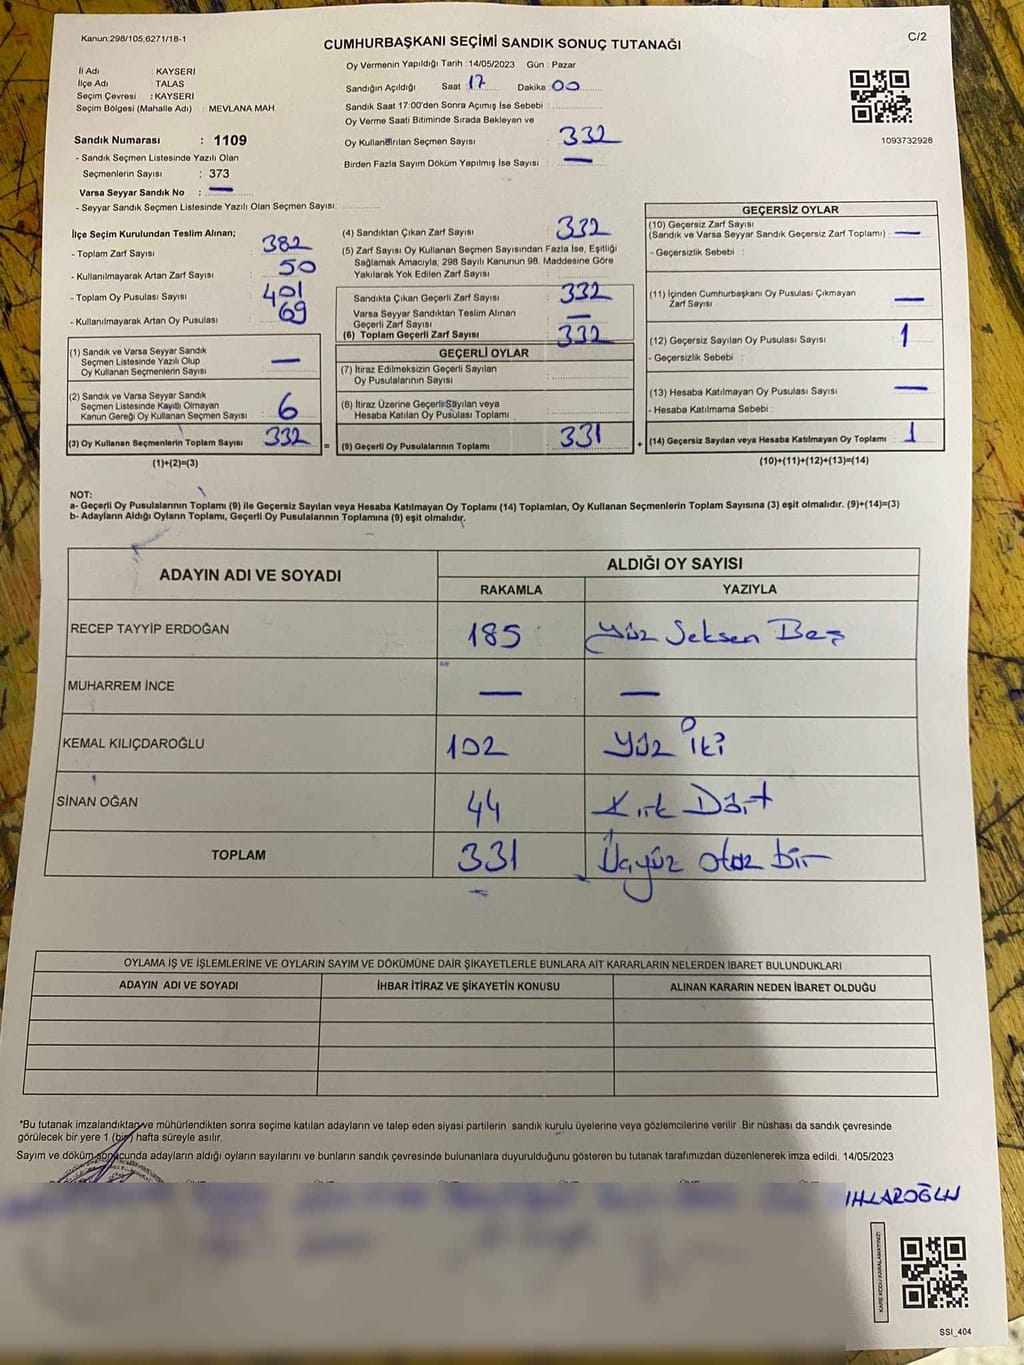 Kanun;298/105;6271/18-1
C/2
CUMHURBAŞKANI SEÇİMİ SANDIK SONUÇ TUTANAĞI
İl Adı : KAYSERİ
İlçe Adı : TALAS
Seçim Çevresi : KAYSERİ
Seçim Bölgesi (Mahalle Adı) : MEVLANA MAH.
Sandık Numarası : 1109
- Sandık Seçmen Listesinde Yazılı Olan
Seçmenlerin Sayısı : 373
Varsa Seyyar Sandık No : —
- Seyyar Sandık Seçmen Listesinde Yazılı Olan Seçmen Sayısı:
Oy Vermenin Yapıldığı Tarih : 14/05/2023 Gün : Pazar
Sandığın Açıldığı Saat : 17 Dakika : 00
Sandık Saat 17:00'den Sonra Açımış İse Sebebi :
Oy Verme Saati Bitiminde Sırada Bekleyen ve
Oy Kullandırılan Seçmen Sayısı : 332
Birden Fazla Sayım Döküm Yapılmış İse Sayısı : —
1093732928
İlçe Seçim Kurulundan Teslim Alınan;
- Toplam Zarf Sayısı : 382
- Kullanılmayarak Artan Zarf Sayısı : 50
- Toplam Oy Pusulası Sayısı : 401
- Kullanılmayarak Artan Oy Pusulası : 69
(1) Sandık ve Varsa Seyyar Sandık
Seçmen Listesinde Yazılı Olup
Oy Kullanan Seçmenlerin Sayısı : —
(2) Sandık ve Varsa Seyyar Sandık
Seçmen Listesinde Kayıtlı Olmayan
Kanun Gereği Oy Kullanan Seçmen Sayısı : 6
(3) Oy Kullanan Seçmenlerin Toplam Sayısı : 332
(1)+(2)=(3)
(4) Sandıktan Çıkan Zarf Sayısı : 332
(5) Zarf Sayısı Oy Kullanan Seçmen Sayısından Fazla İse, Eşitliği
Sağlamak Amacıyla, 298 Sayılı Kanunun 98. Maddesine Göre
Yakılarak Yok Edilen Zarf Sayısı :
Sandıkta Çıkan Geçerli Zarf Sayısı : 332
Varsa Seyyar Sandıktan Teslim Alınan
Geçerli Zarf Sayısı : —
(6) Toplam Geçerli Zarf Sayısı : 332
GEÇERLİ OYLAR
(7) İtiraz Edilmeksizin Geçerli Sayılan
Oy Pusulalarının Sayısı :
(8) İtiraz Üzerine Geçerli Sayılan veya
Hesaba Katılan Oy Pusulası Toplamı :
= (9) Geçerli Oy Pusulalarının Toplamı : 331 +
GEÇERSİZ OYLAR
(10) Geçersiz Zarf Sayısı
(Sandık ve Varsa Seyyar Sandık Geçersiz Zarf Toplamı) : —
- Geçersizlik Sebebi :
(11) İçinden Cumhurbaşkanı Oy Pusulası Çıkmayan
Zarf Sayısı : —
(12) Geçersiz Sayılan Oy Pusulası Sayısı : 1
- Geçersizlik Sebebi :
(13) Hesaba Katılmayan Oy Pusulası Sayısı : —
- Hesaba Katılmama Sebebi :
(14) Geçersiz Sayılan veya Hesaba Katılmayan Oy Toplamı : 1
(10)+(11)+(12)+(13)=(14)
NOT:
a- Geçerli Oy Pusulalarının Toplamı (9) ile Geçersiz Sayılan veya Hesaba Katılmayan Oy Toplamı (14) Toplamları, Oy Kullanan Seçmenlerin Toplam Sayısına (3) eşit olmalıdır. (9)+(14)=(3)
b- Adayların Aldığı Oyların Toplamı, Geçerli Oy Pusulalarının Toplamına (9) eşit olmalıdır.
ADAYIN ADI VE SOYADI ALDIĞI OY SAYISI
RAKAMLA YAZIYLA
RECEP TAYYİP ERDOĞAN 185 Yüz Seksen Beş
MUHARREM İNCE — —
KEMAL KILIÇDAROĞLU 102 Yüz iki
SİNAN OĞAN 44 Kırk Dört
TOPLAM 331 Üçyüz otuz bir
OYLAMA İŞ VE İŞLEMLERİNE VE OYLARIN SAYIM VE DÖKÜMÜNE DAİR ŞİKAYETLERLE BUNLARA AİT KARARLARIN NELERDEN İBARET BULUNDUKLARI
ADAYIN ADI VE SOYADI İHBAR İTİRAZ VE ŞİKAYETİN KONUSU ALINAN KARARIN NEDEN İBARET OLDUĞU
*Bu tutanak imzalandıktan ve mühürlendikten sonra seçime katılan adayların ve talep eden siyasi partilerin sandık kurulu üyelerine veya gözlemcilerine verilir .Bir nüshası da sandık çevresinde
görülecek bir yere 1 (bir) hafta süreyle asılır.
Sayım ve döküm sonucunda adayların aldığı oyların sayılarını ve bunların sandık çevresinde bulunanlara duyurulduğunu gösteren bu tutanak tarafımızdan düzenlenerek imza edildi. 14/05/2023
KARE KODU KARALAMAYINIZ!
SSI_404